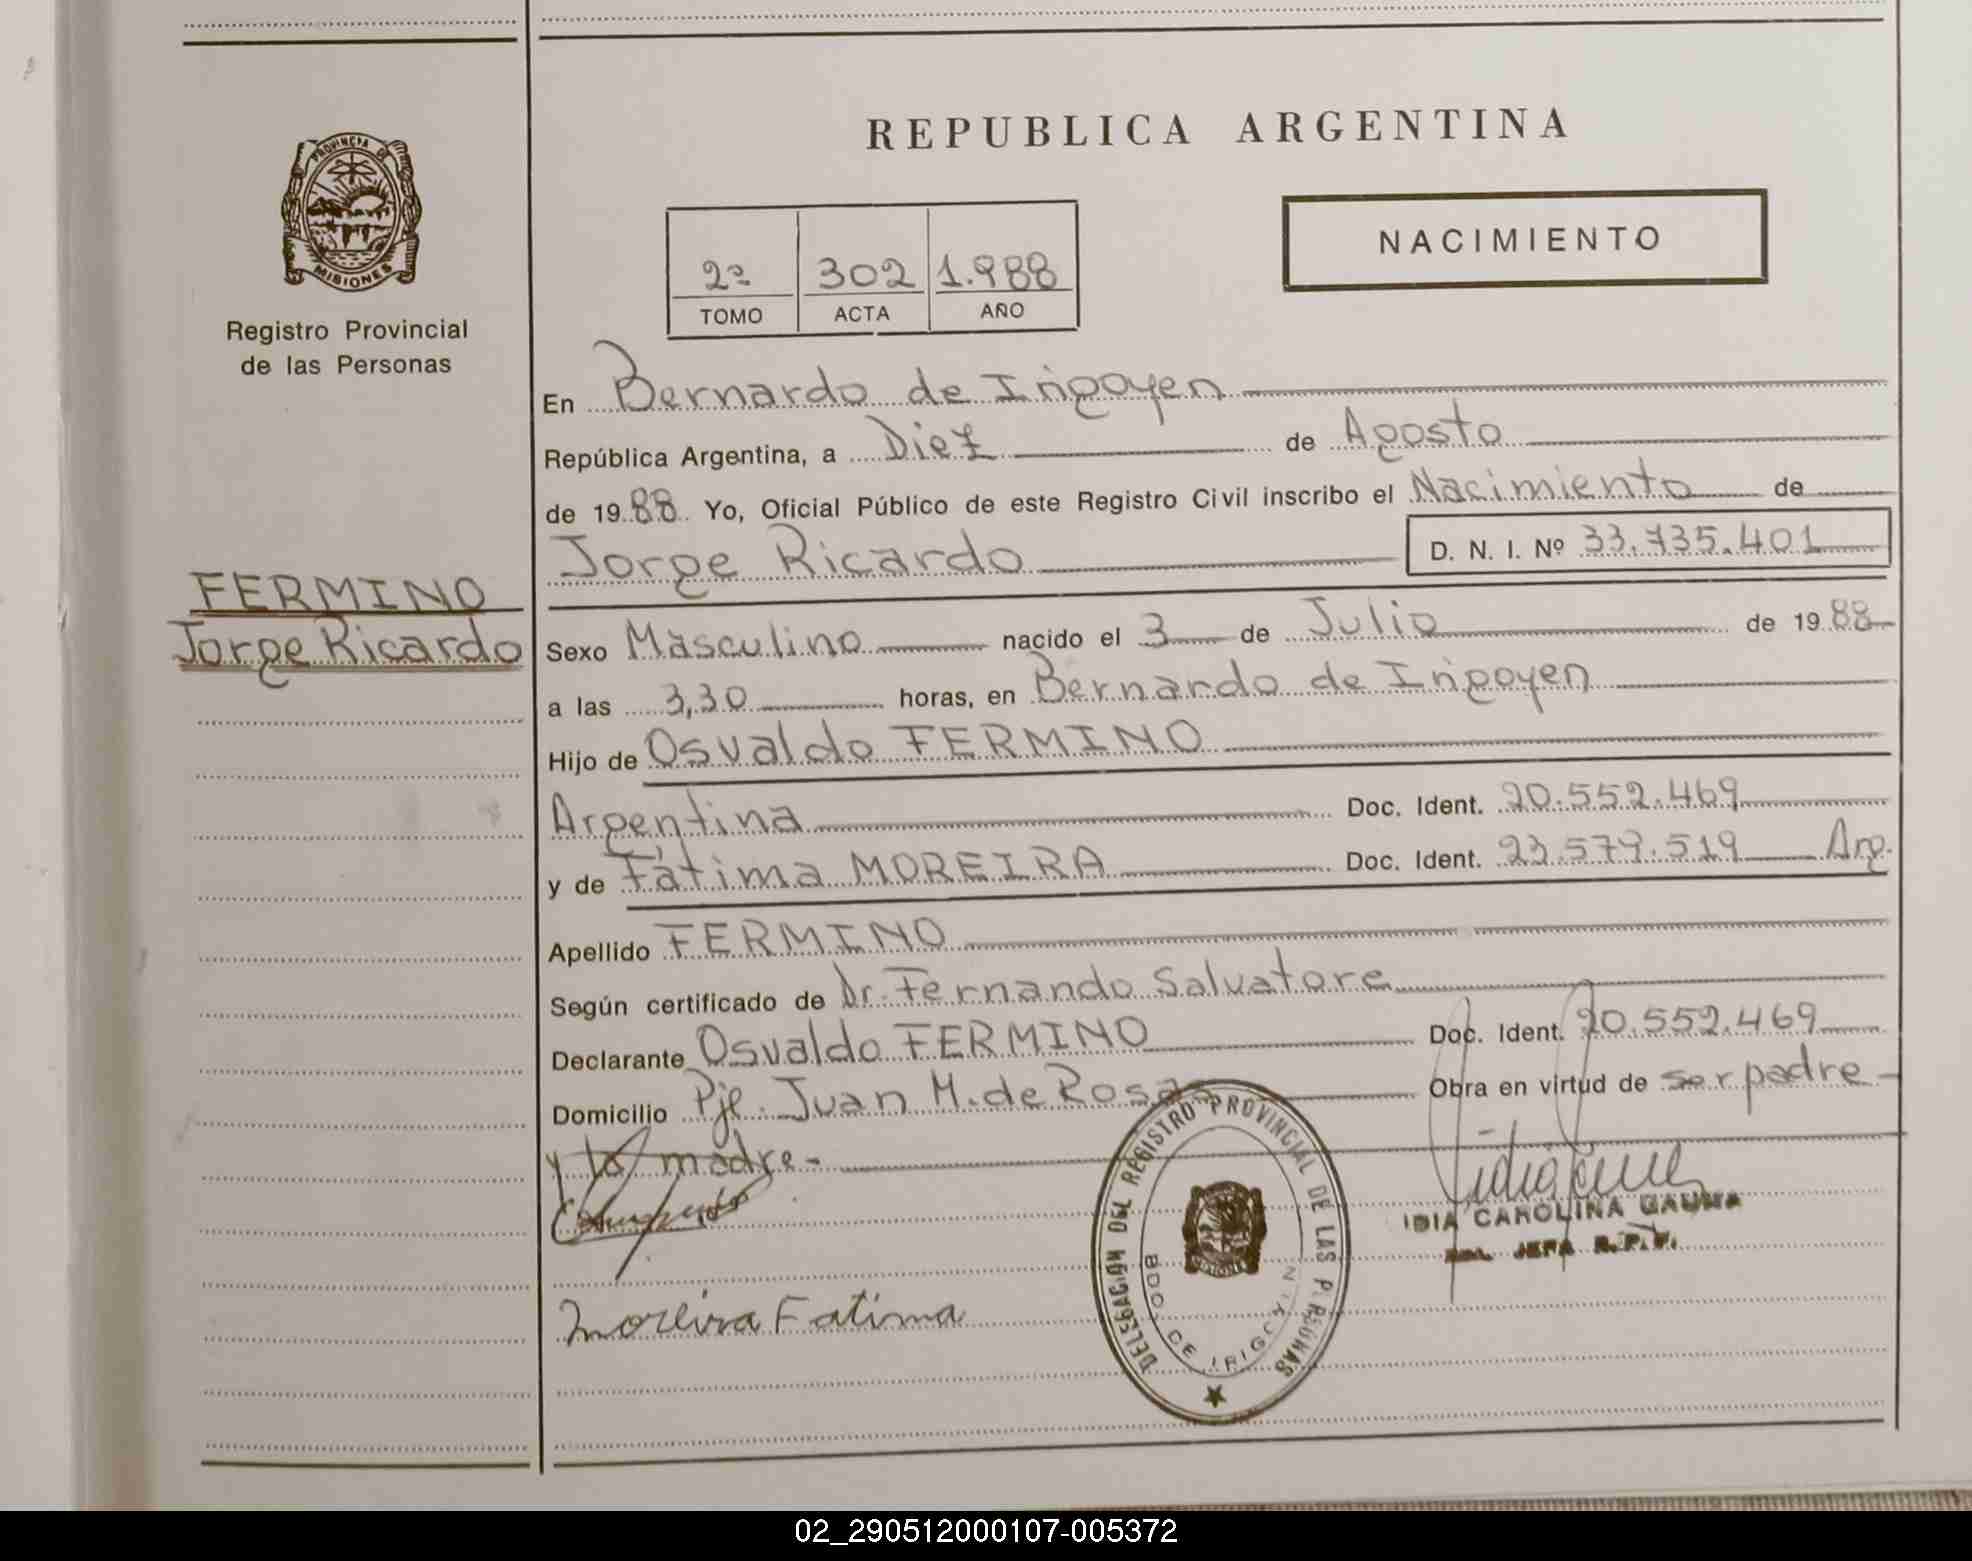 REPUBLICA ARGENTINA
PROVINCIA DE
MISIONES
Registro Provincial
de las Personas
NACIMIENTO
2º 302 1.988
TOMO ACTA AÑO
En Bernardo de Irigoyen
República Argentina, a Diez de Agosto
de 1988 Yo, Oficial Público de este Registro Civil inscribo el Nacimiento de
Jorge Ricardo D. N. I. Nº 33.735.401
FERMINO
Jorge Ricardo
Sexo Masculino nacido el 3 de Julio de 1988
a las 3,30 horas, en Bernardo de Irigoyen
Hijo de Osvaldo FERMINO
Argentina Doc. Ident. 20.552.469
y de Fátima MOREIRA Doc. Ident. 23.579.519 Arg.
Apellido FERMINO
Según certificado de Dr. Fernando Salvatore
Declarante Osvaldo FERMINO Doc. Ident. 20.552.469
Domicilio Pje. Juan M. de Rosas Obra en virtud de ser padre
y la madre-
Moreira Fatima
DELEGACION DEL REGISTRO PROVINCIAL DE LAS PERSONAS
BDO. DE IRIGOYEN
MISIONES
IDIA CAROLINA GAUNA
JEFA R.P.P.
02_290512000107-005372